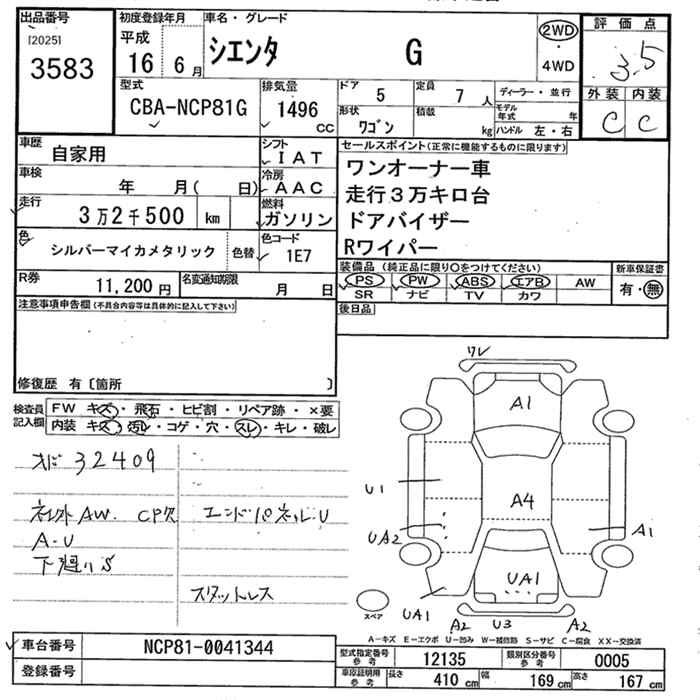 出品番号
[2025]
3583
初度登録年月
平成
16 6 月
車名・グレード
シエンタ G
2WD
・
4WD
評価点
3.5
外装 内装
C C
型式
CBA-NCP81G
排気量
1496
CC
ドア
5
定員
7 人
形状
ワゴン
積載
kg
ディーラー・並行
モデル年式 年
ハンドル 左・右
車歴
自家用
シフト
IAT
車検
年 月( 日)
冷房
AAC
走行
3万2千500 km
燃料
ガソリン
色
シルバーマイカメタリック
色替
色コード
1E7
R券
11,200 円
名変通知期限
月 日
セールスポイント(正常に機能するものに限ります)
ワンオーナー車
走行3万キロ台
ドアバイザー
Rワイパー
装備品(純正品に限り○をつけてください)
PS PW ABS エアB AW
SR ナビ TV カワ
新車保証書
有・無
後日品
注意事項申告欄(不具合内容等は具体的に記入して下さい)
修復歴 有〔箇所 〕
検査員記入欄
FW キズ・飛石・ヒビ割・リペア跡・×要
内装 キズ・汚レ・コゲ・穴・スレ・キレ・破レ
オド 32409
ネレ外 AW. CP欠
A-U
下廻りS
エンドパネルU
スタットレス
ワレ
A1
U1
A4
UA2
A1
UA1
UA1
A2
U3
A2
スペア
A-キズ E-エクボ U-凹み W-補修跡 S-サビ C-腐食 XX-交換済
車台番号
NCP81-0041344
登録番号
型式指定番号
参考
12135
類別区分番号
参考
0005
車庫証明用
参考
長さ 410 cm
幅 169 cm
高さ 167 cm